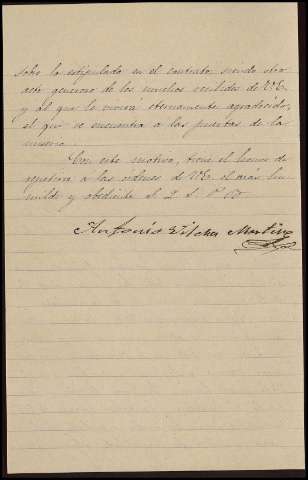 sobre lo estipulado en el contrato; siendo otro
acto generoso de los muchos vertidos de V.E.
y al que le vivirá eternamente agradecido,
el que se encuentra a las puertas de la
miseria.
Con este motivo, tiene el honor de
repetirse a las ordenes de V.E. el más hu-
milde y obediente S. Q. S. P. B.
Antonio Vilcha Martine